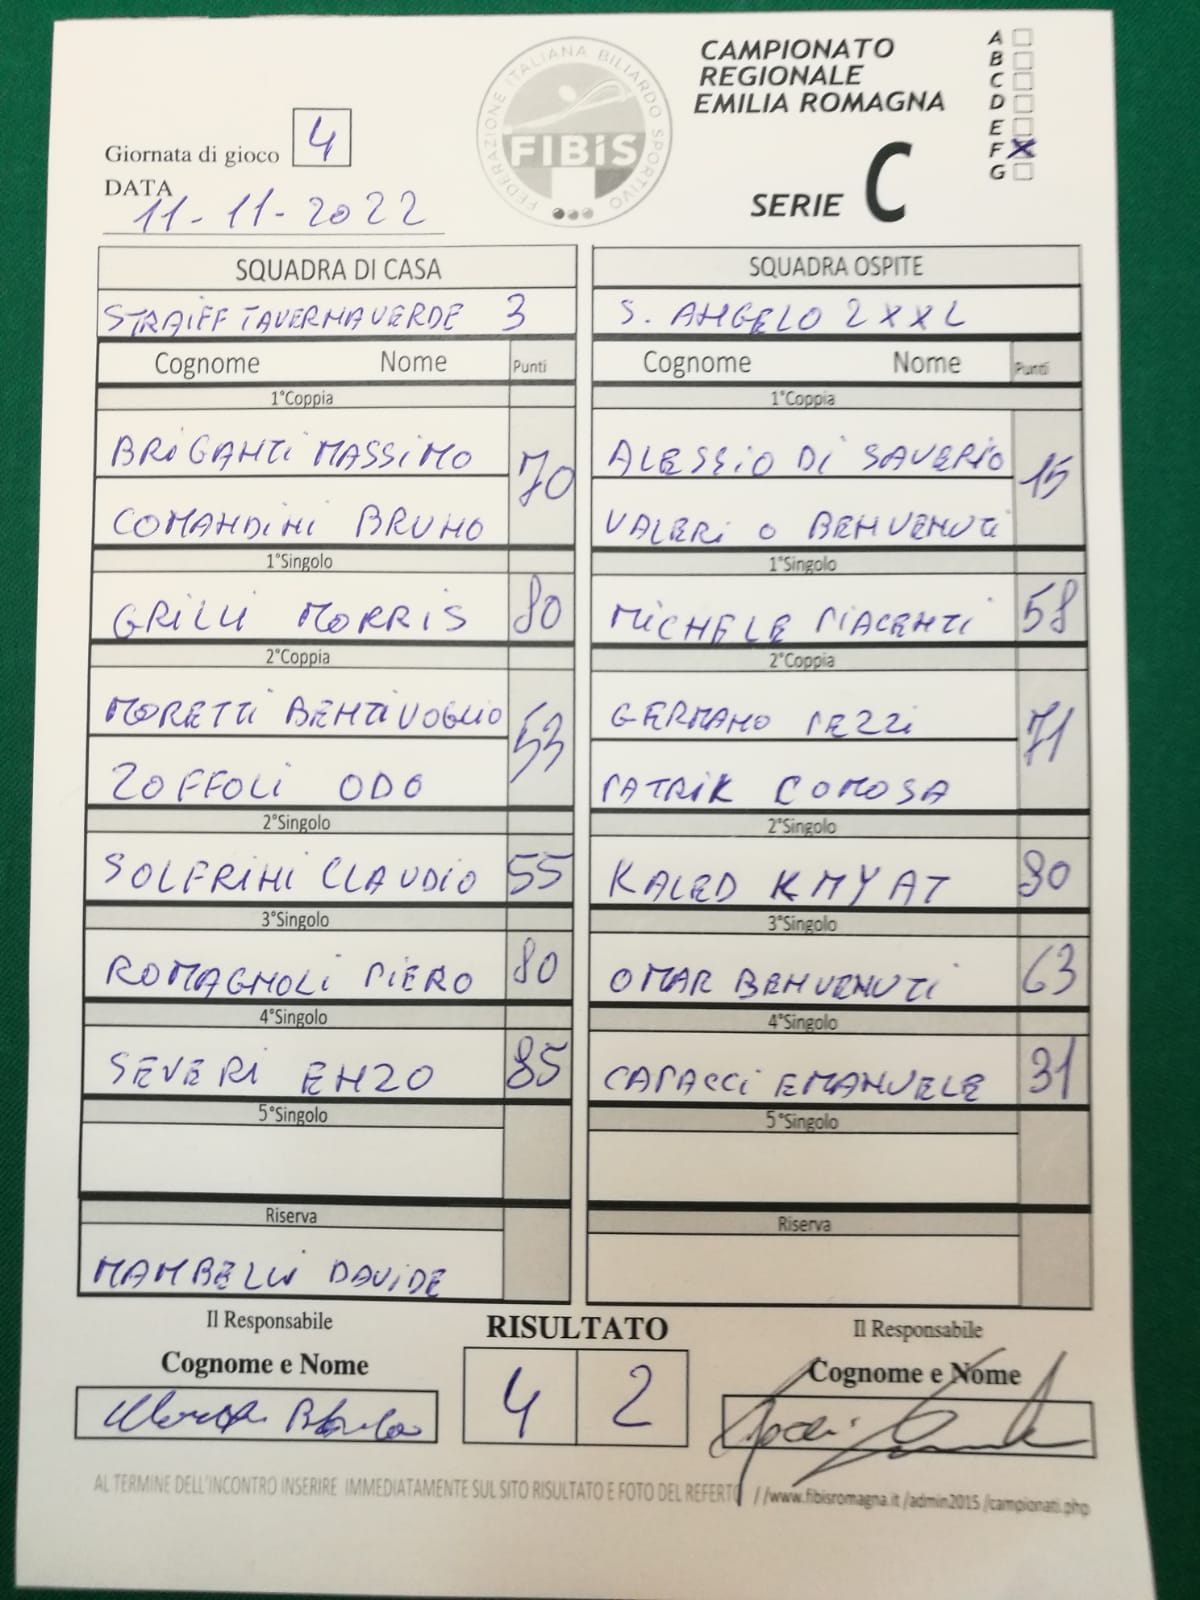 FEDERAZIONE ITALIANA BILIARDO SPORTIVO
FIBiS
CAMPIONATO
REGIONALE
EMILIA ROMAGNA
SERIE C
A
B
C
D
E
F X
G
Giornata di gioco 4
DATA
11-11-2022
SQUADRA DI CASA
STRAIFF TAVERNAVERDE 3
Cognome Nome Punti
1°Coppia
BRIGANTI MASSIMO 70
COMANDINI BRUNO
1°Singolo
GRILLI MORRIS 80
2°Coppia
MORETTI BENTIVOGLIO 53
ZOFFOLI ODO
2°Singolo
SOLFRINI CLAUDIO 55
3°Singolo
ROMAGNOLI PIERO 80
4°Singolo
SEVERI ENZO 85
5°Singolo
Riserva
MAMBELLI DAVIDE
SQUADRA OSPITE
S. ANGELO 2 XXL
Cognome Nome Punti
1°Coppia
ALESSIO DI SAVERIO 15
VALERIO BENVENUTI
1°Singolo
MICHELE PIACENTI 58
2°Coppia
GERMANO PEZZI 71
PATRIK COMOSA
2°Singolo
KALED KMYAT 80
3°Singolo
OMAR BENVENUTI 63
4°Singolo
CAPACCI EMANUELE 31
5°Singolo
Riserva
Il Responsabile
Cognome e Nome
RISULTATO
4 2
Il Responsabile
Cognome e Nome
AL TERMINE DELL'INCONTRO INSERIRE IMMEDIATAMENTE SUL SITO RISULTATO E FOTO DEL REFERTO //www.fibisromagna.it /admin2015 /campionati.php